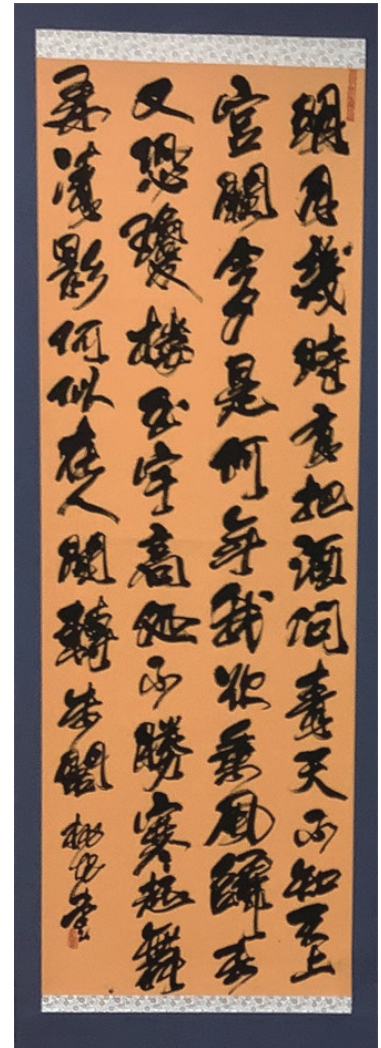 明月幾時有把酒問青天不知天上
宮闕今夕是何年我欲乘風歸去
又恐瓊樓玉宇高処不勝寒起舞
弄清影何似在人間轉朱閣